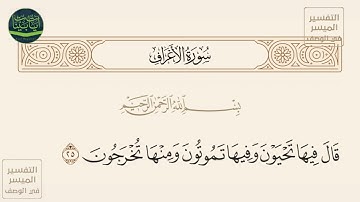 سُورَةُ الأَعْرَافِ
التفسير
الميسر
في الوصف
بِسْمِ اللَّهِ الرَّحْمَٰنِ الرَّحِيمِ
قَالَ فِيهَا تَحْيَوْنَ وَفِيهَا تَمُوتُونَ وَمِنْهَا تُخْرَجُونَ ٢٥
التفسير
الميسر
في الوصف